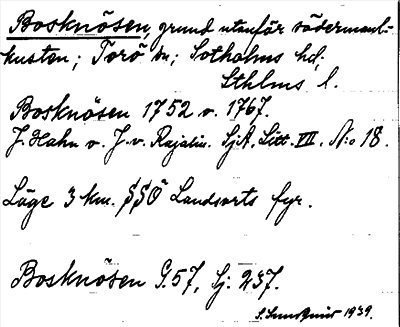 Bosknösen, grund utanför södermanl:-
kusten; Torö sn; Sotholms hd;
Sthlms l.
Bosknösen 1752 o. 1767.
J. Hahn o. J. v. Rajalin. SjA. Litt. VII. N:o 18.
Läge 3 km. SSÖ Landsorts fyr.
Bosknösen G. 57, Sj: 237.
S. Sundqvist 1939.